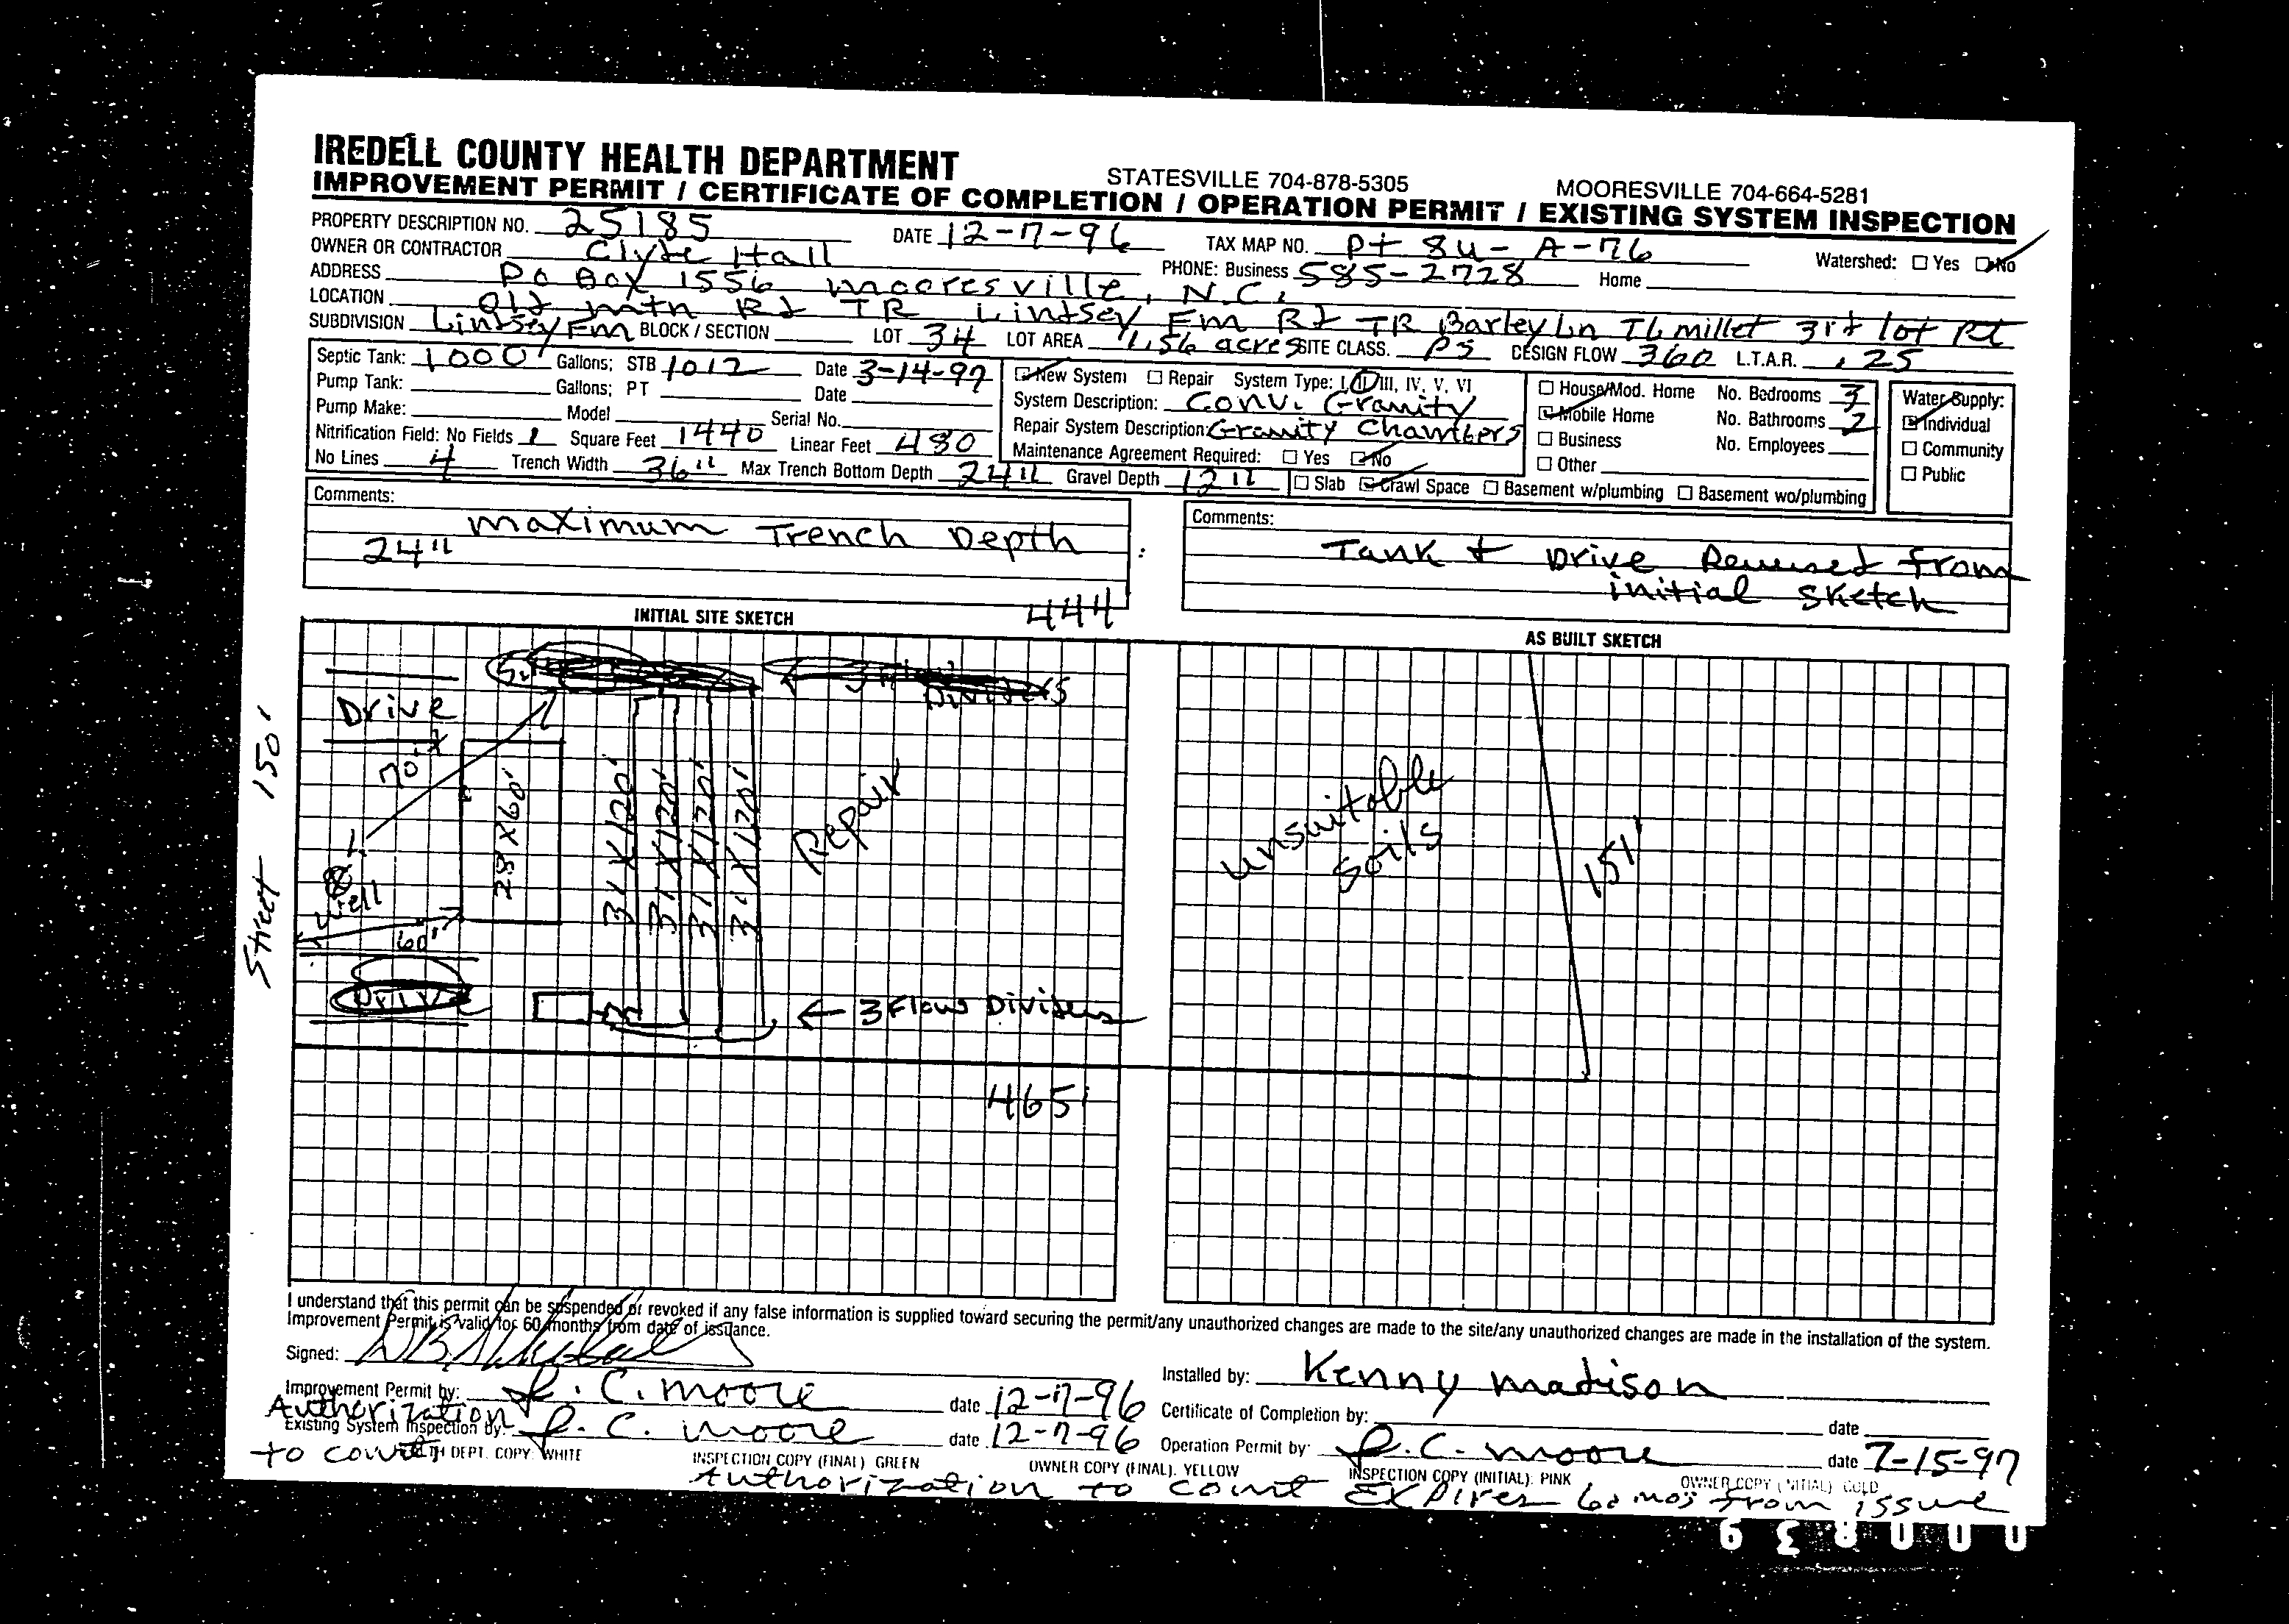 IREDELL COUNTY HEALTH DEPARTMENT
STATESVILLE 704-878-5305 MOORESVILLE 704-664-5281
IMPROVEMENT PERMIT / CERTIFICATE OF COMPLETION / OPERATION PERMIT / EXISTING SYSTEM INSPECTION
PROPERTY DESCRIPTION NO. 25185 DATE 12-17-96 TAX MAP NO. Pt 8U-A-76 Watershed: Yes No
OWNER OR CONTRACTOR Clyde Hall PHONE: Business 585-2728 Home
ADDRESS PO Box 1556 Mooresville, N.C.
LOCATION Old Mtn Rd TR Lindsey Fm Rd TR Barley Ln TL millet 3rd lot Rt
SUBDIVISION Lindsey Fm BLOCK / SECTION LOT 34 LOT AREA 1.56 acres SITE CLASS. PS DESIGN FLOW 360 L.T.A.R. .25
Septic Tank: 1000 Gallons; STB 1012 Date 3-14-97
Pump Tank: Gallons; PT Date
Pump Make: Model Serial No.
Nitrification Field: No Fields 1 Square Feet 1440 Linear Feet 480
No Lines 4 Trench Width 36" Max Trench Bottom Depth 24" Gravel Depth 12"
New System Repair System Type: I, II, III, IV, V, VI
System Description: Conv. Gravity
Repair System Description: Gravity Chambers
Maintenance Agreement Required: Yes No
Slab Crawl Space Basement w/plumbing Basement wo/plumbing
House/Mod. Home No. Bedrooms 3
Mobile Home No. Bathrooms 2
Business No. Employees
Other
Water Supply:
Individual
Community
Public
Comments:
maximum Trench Depth
24"
Comments:
Tank + Drive Reversed from
initial sketch
INITIAL SITE SKETCH
444
AS BUILT SKETCH
Dividers
Drive
70'
Street 150'
28 X 60'
3' X 120'
3' X 120'
3' X 120'
3' X 120'
Repair
Well
60'
Drive
← 3 Flow Dividers
465'
unsuitable
soils
151'
I understand that this permit can be suspended or revoked if any false information is supplied toward securing the permit/any unauthorized changes are made to the site/any unauthorized changes are made in the installation of the system.
Improvement Permit is valid for 60 months from date of issuance.
Signed:
Improvement Permit by: R. C. Moore date 12-17-96
Authorization
Existing System Inspection by: R. C. Moore date 12-17-96
to const
Installed by: Kenny Madison
Certificate of Completion by: date
Operation Permit by: R. C. Moore date 7-15-97
DEPT. COPY: WHITE INSPECTION COPY (FINAL) GREEN OWNER COPY (FINAL). YELLOW INSPECTION COPY (INITIAL): PINK OWNER COPY (INITIAL) GOLD
Authorization to const Expires 60 mos from issue